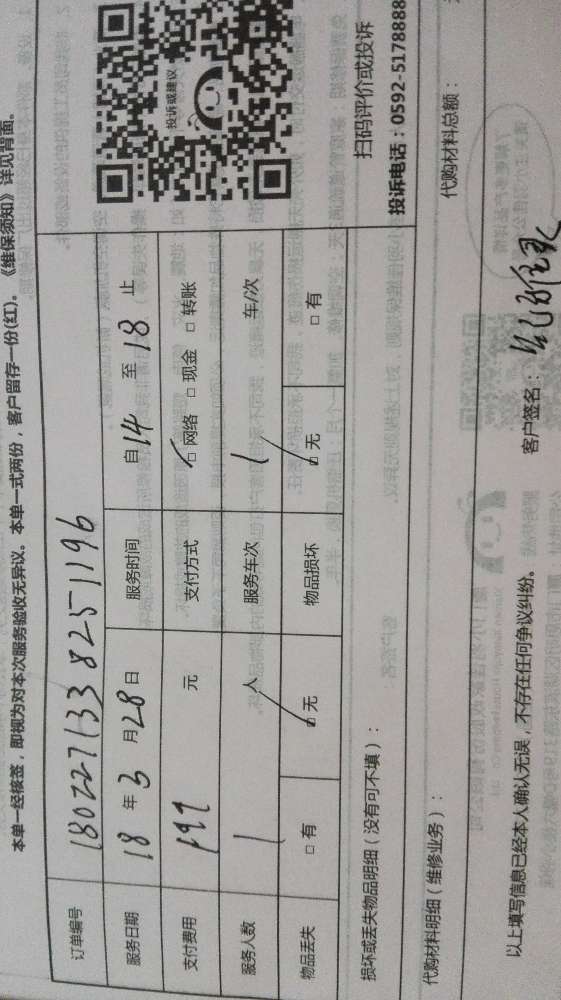 本单一经核签，即视为对本次服务验收无异议。本单一式两份，客户留存一份(红)。《维保须知》详见背面。
订单编号 1802271338251196
投诉或建议
服务日期 18 年 3 月 28 日 服务时间 自 14 至 18 止
支付费用 197 元 支付方式 □ 网络 □ 现金 □ 转账
服务人数 1 人 服务车次 1 车/次
物品丢失 □ 有 □ 无 物品损坏 □ 无 □ 有
扫码评价或投诉
投诉电话：0592-5178888
损坏或丢失物品明细（没有可不填）：
代购材料明细（维修业务）： 代购材料总额：
以上填写信息已经本人确认无误，不存在任何争议纠纷。 客户签名：